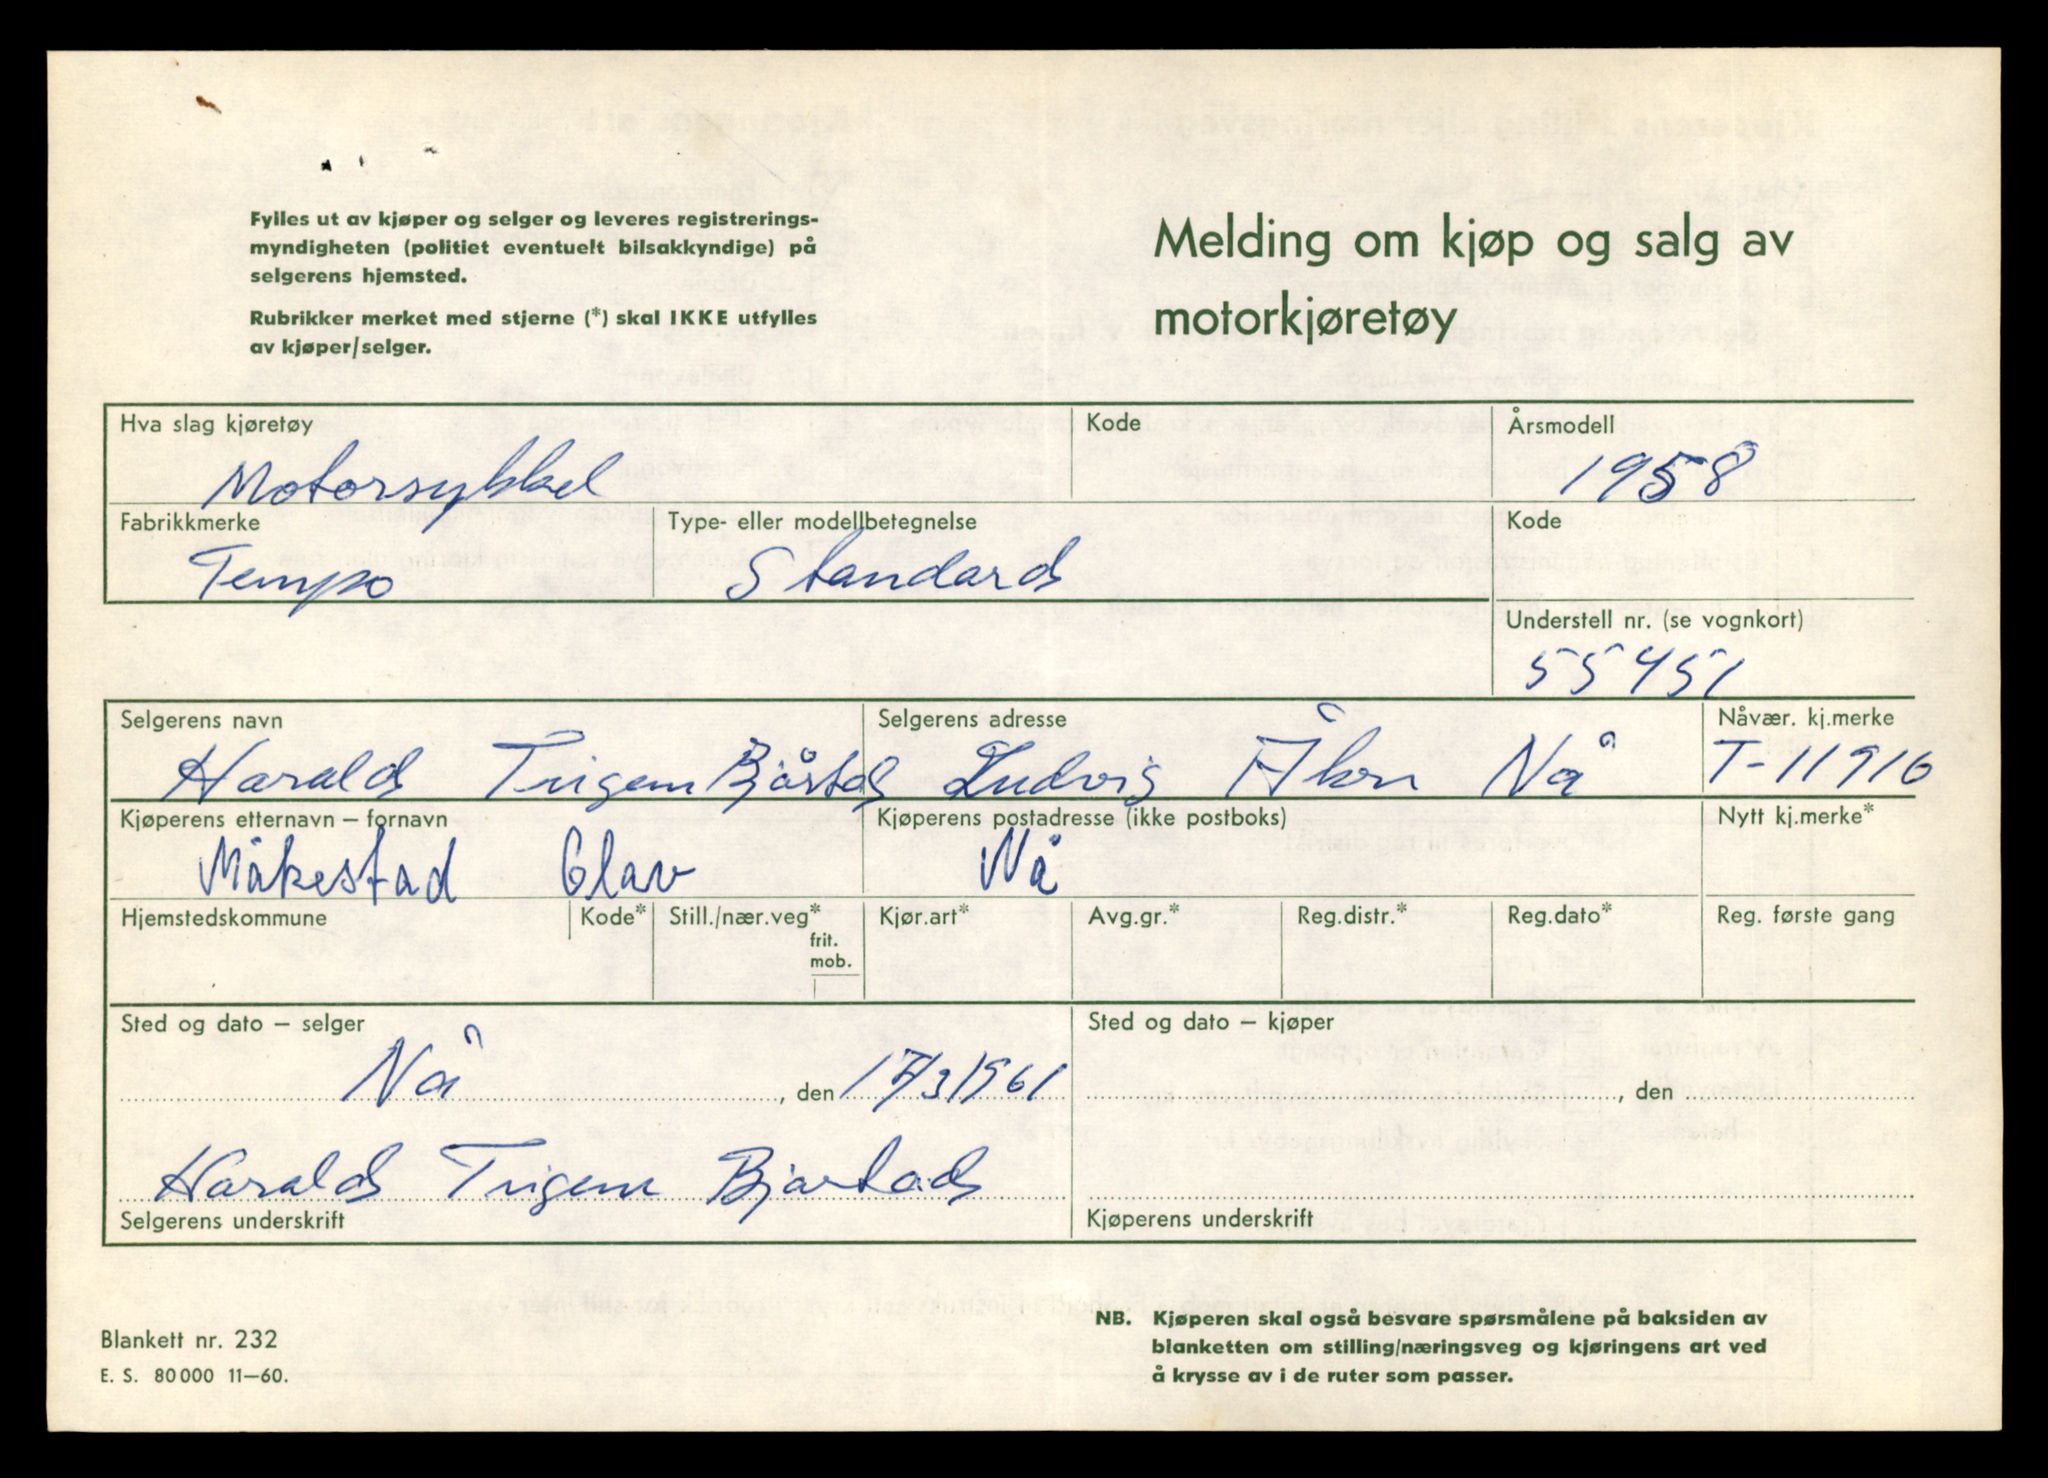 Fylles ut av kjøper og selger og leveres registrerings-
myndigheten (politiet eventuelt bilsakkyndige) på
selgerens hjemsted.
Rubrikker merket med stjerne (*) skal IKKE utfylles
av kjøper/selger.
Melding om kjøp og salg av
motorkjøretøy
Hva slag kjøretøy Kode Årsmodell
Motorsykkel 1958
Fabrikkmerke Type- eller modellbetegnelse Kode
Tempo Standard
Understell nr. (se vognkort)
55451
Selgerens navn Selgerens adresse Nåvær. kj.merke
Harald Trigem Bjåstad Ludvig Nå T-11916
Kjøperens etternavn – fornavn Kjøperens postadresse (ikke postboks) Nytt kj.merke*
Måkestad Olav Nå
Hjemstedskommune Kode* Still./nær.veg* Kjør.art* Avg.gr.* Reg.distr.* Reg.dato* Reg. første gang
frit.
mob.
Sted og dato – selger Sted og dato – kjøper
Nå , den 17/3 1961 , den
Harald Trigem Bjåstad
Selgerens underskrift Kjøperens underskrift
NB. Kjøperen skal også besvare spørsmålene på baksiden av
blanketten om stilling/næringsveg og kjøringens art ved
å krysse av i de ruter som passer.
Blankett nr. 232
E. S. 80000 11–60.